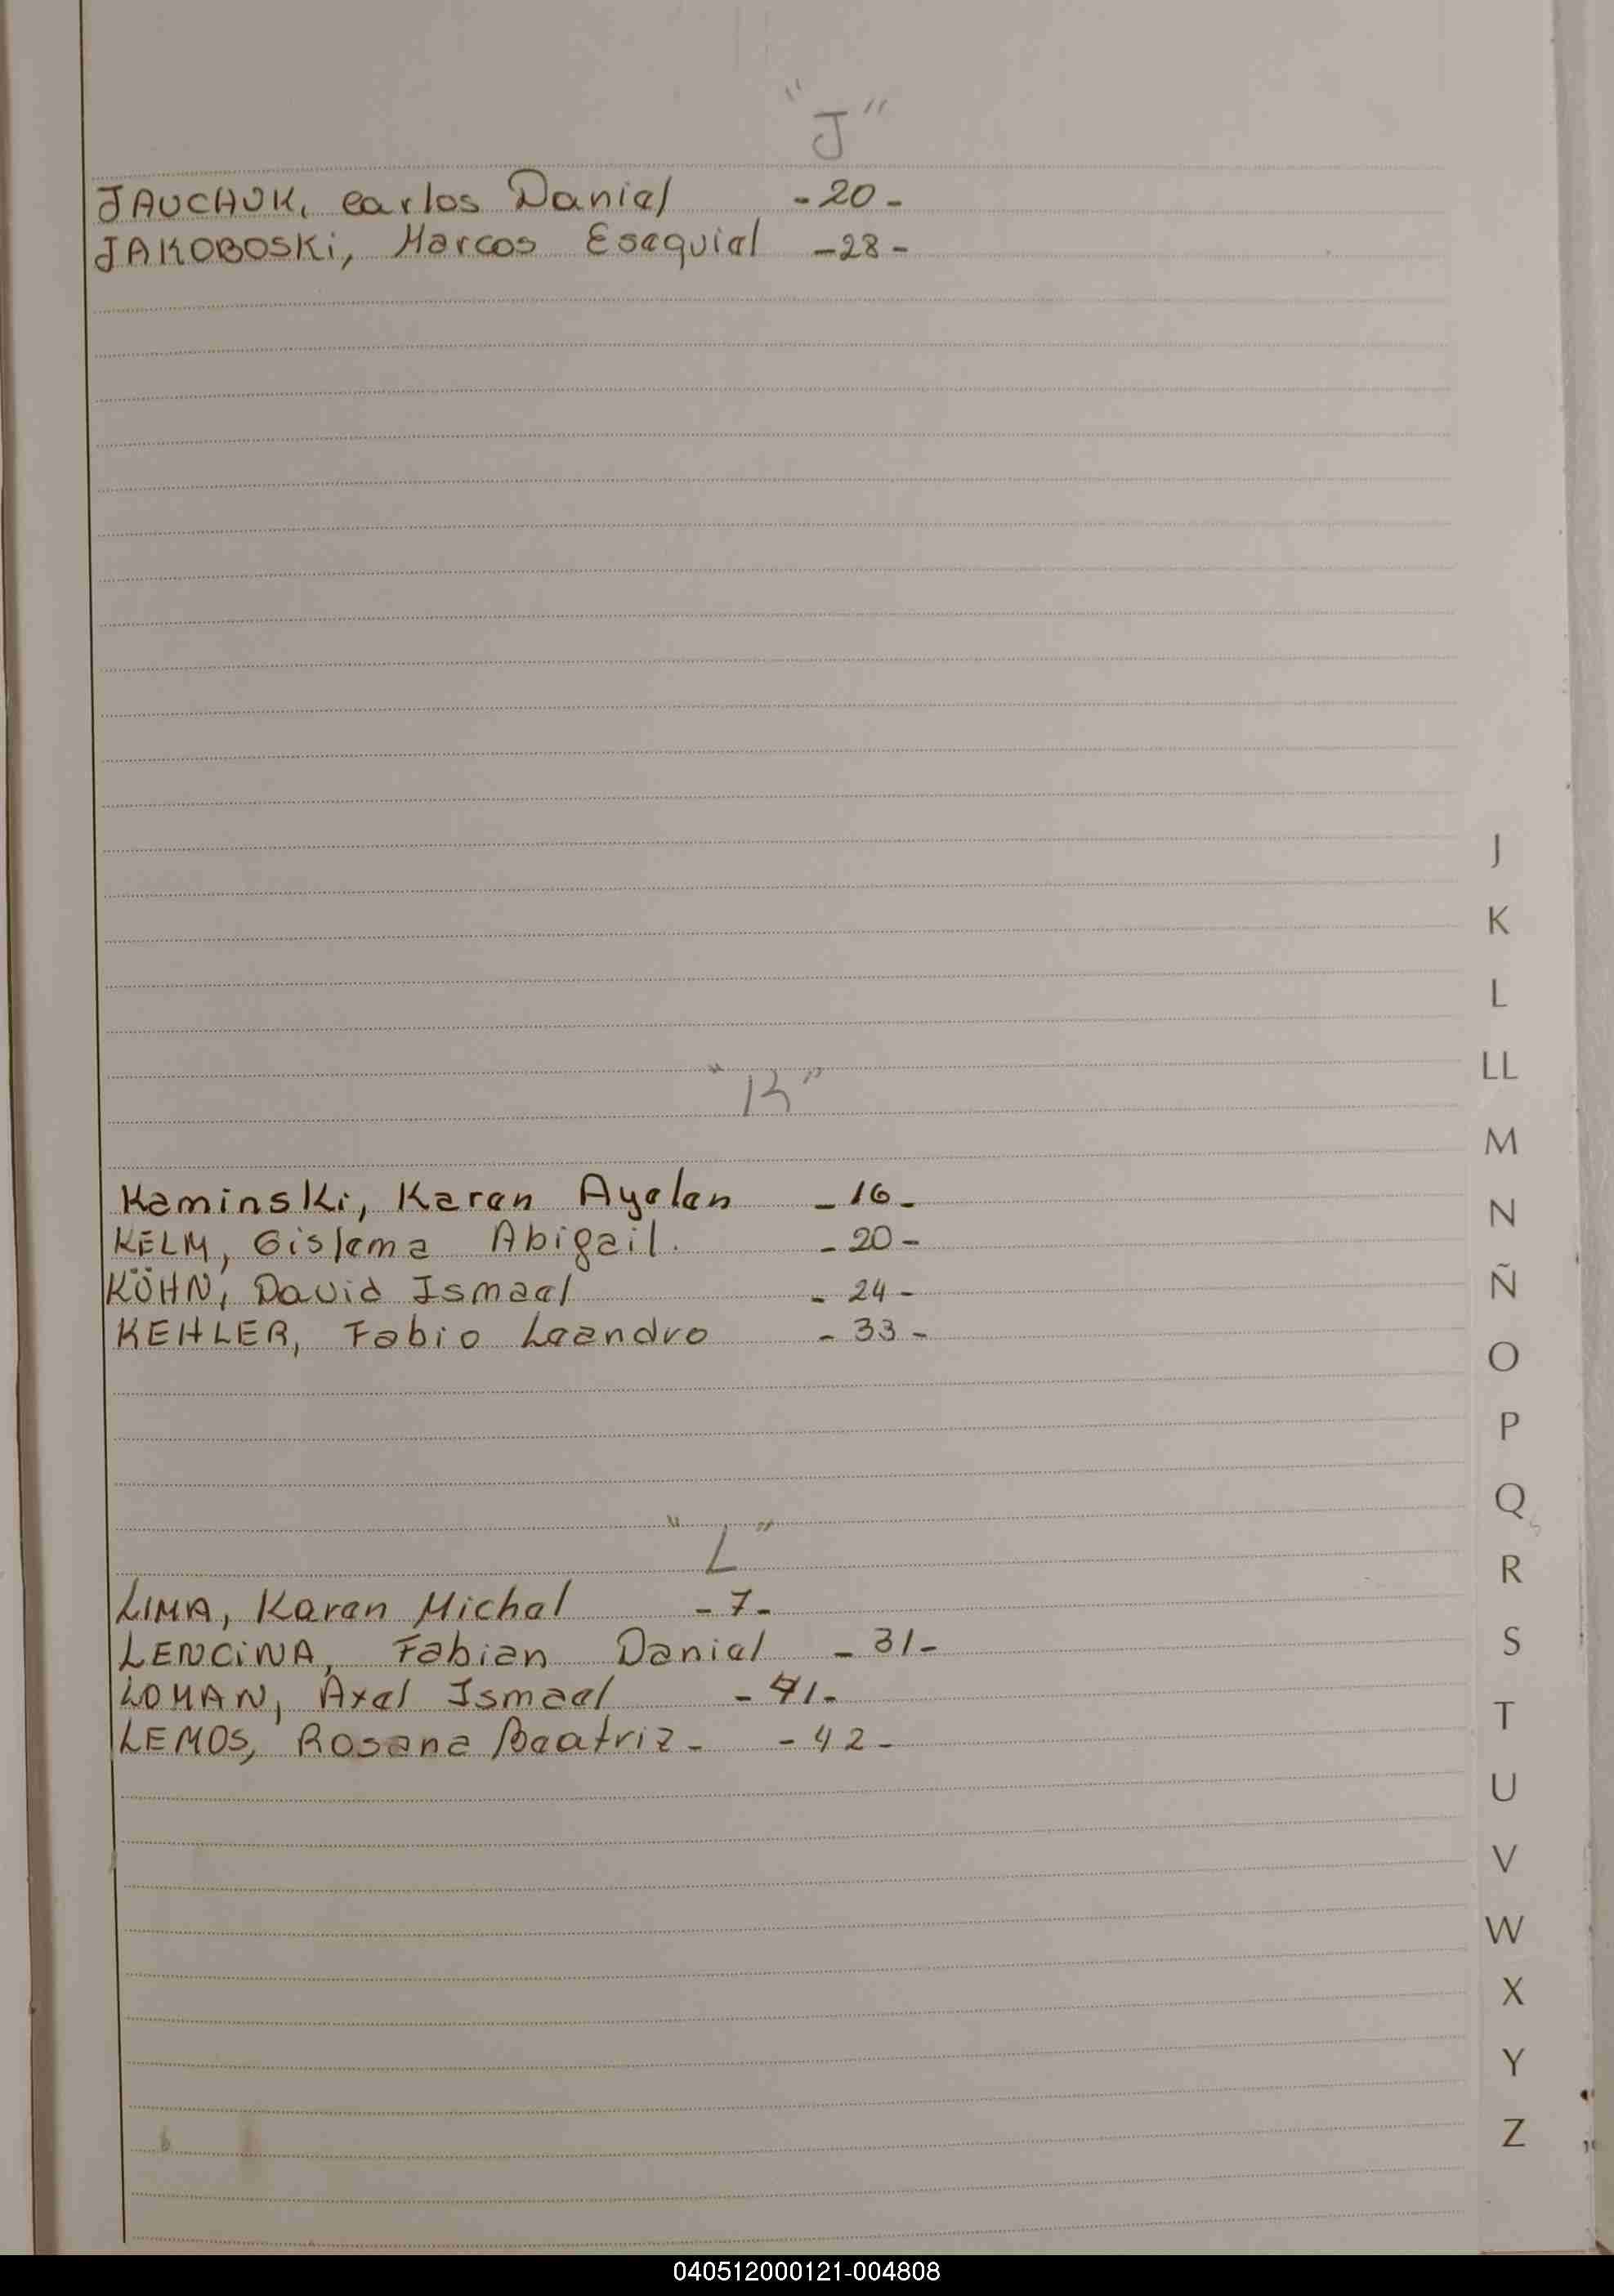 "J"
JAUCHUK, Carlos Daniel -20-
JAKOBOSKi, Marcos Esequiel -28-
"K"
Kaminski, Karen Ayelen -16-
KELM, Gislema Abigail. -20-
KÖHN, David Ismael -24-
KEHLER, Fabio Leandro -33-
"L"
LIMA, Karen Michel -7-
LENCiNA, Fabian Daniel -31-
LOMAN, Axel Ismael -41-
LEMOS, Rosana Beatriz- -42-
J
K
L
LL
M
N
Ñ
O
P
Q
R
S
T
U
V
W
X
Y
Z
040512000121-004808